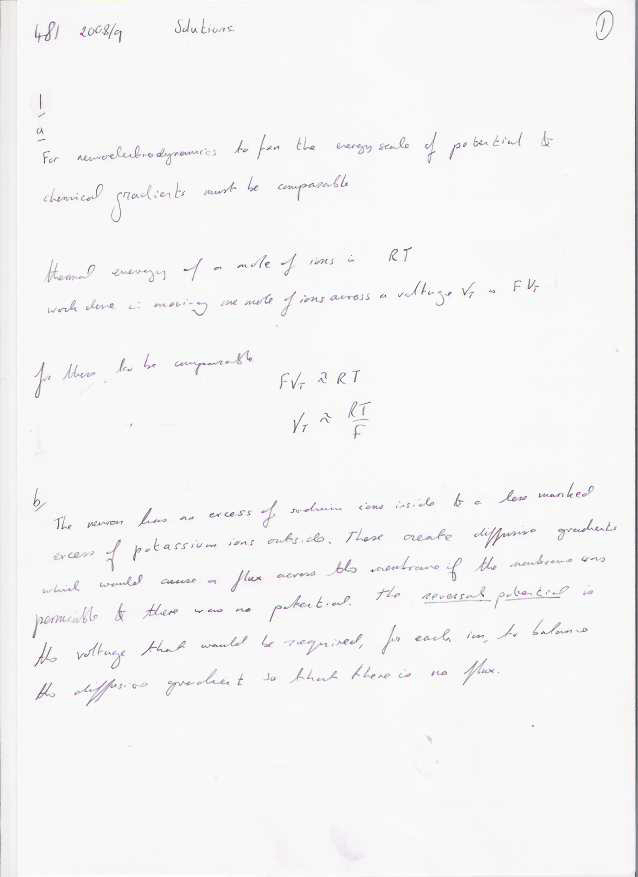 481 2008/9 Solutions
1
1
a
For neuroelectrodynamics to fan the energy scale of potential &
chemical gradients must be comparable
thermal energy of a mole of ions is RT
work done in moving one mole of ions across a voltage V_T is F V_T
for these to be comparable
FV_T ≈ RT
V_T ≈ RT/F
b
The neuron has an excess of sodium ions inside & a less marked
excess of potassium ions outside. These create diffusive gradients
which would cause a flux across the membrane if the membrane was
permeable & there was no potential. the reversal potential is
the voltage that would be required, for each ion, to balance
the diffusive gradient so that there is no flux.